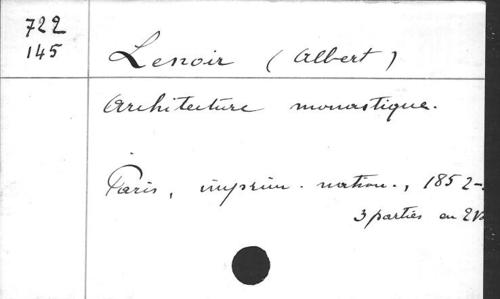 722
145
Lenoir (Albert)
Architecture monastique.
Paris, imprim. nation., 1852-
3 parties en 2 v